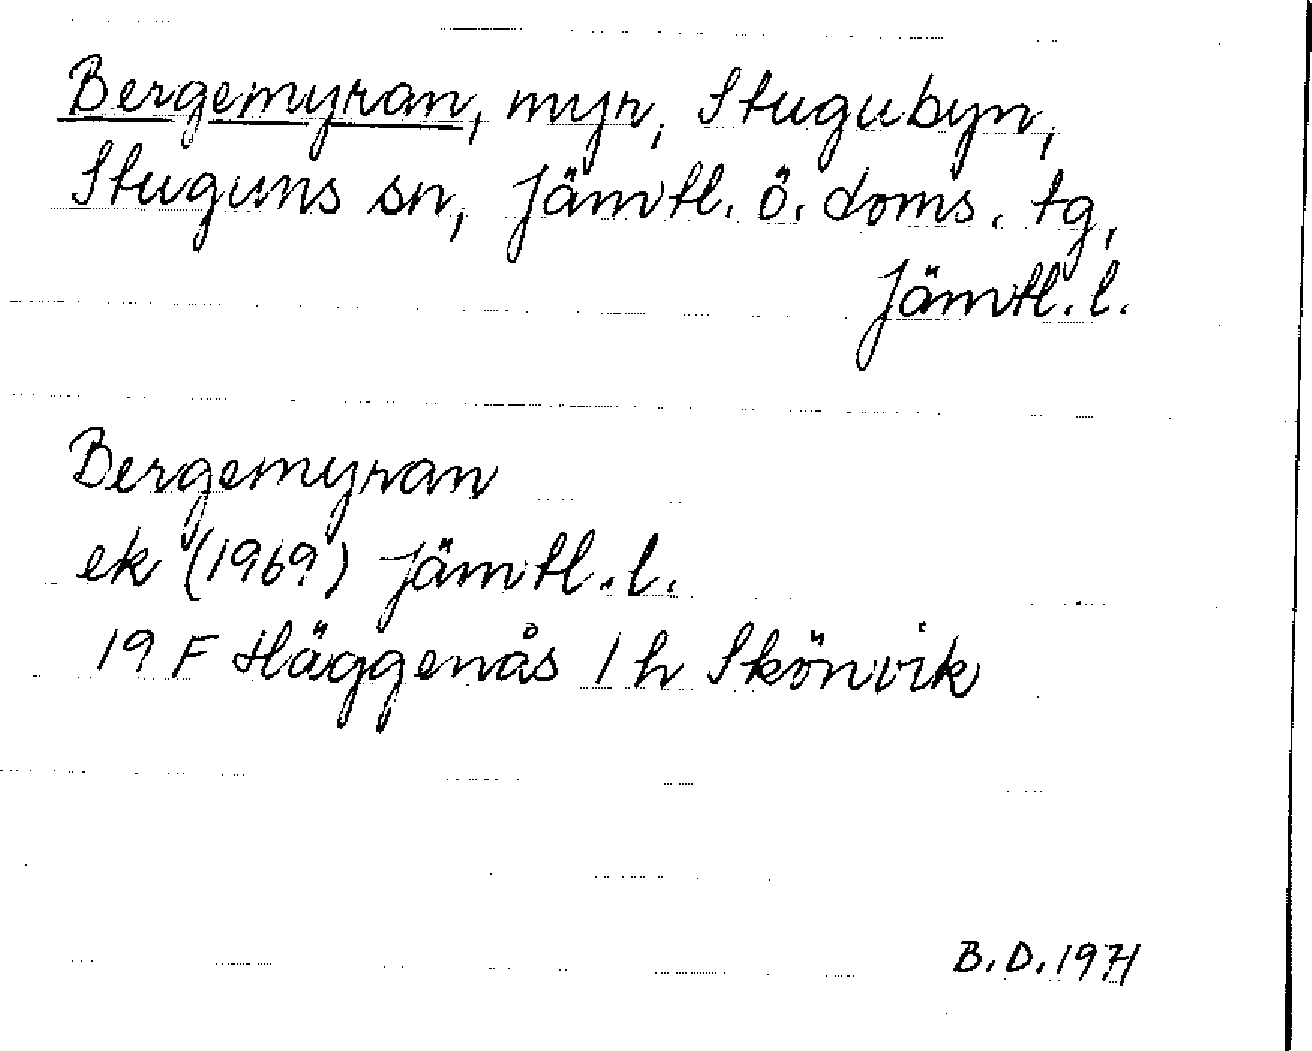 Bergemyran, myr, Stugubyn,
Stuguns sn, Jämtl. ö. doms. tg,
Jämtl. l.
Bergemyran
ek (1969) Jämtl. l.
19 F Häggenås 1 h Skönvik
B. D. 1971